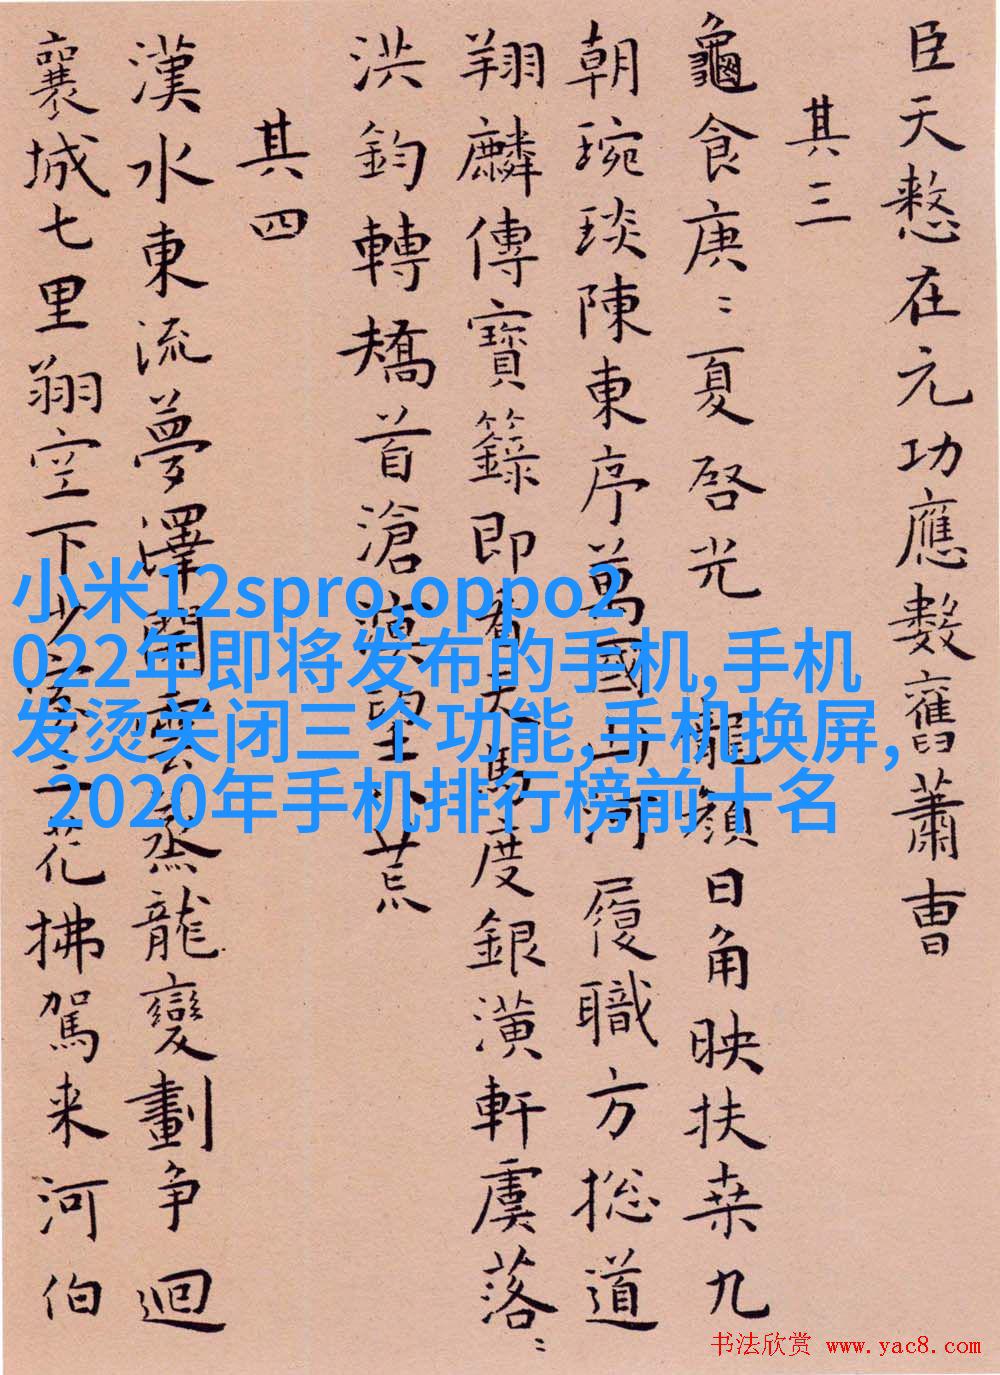 臣天憖在元功應數舊蕭曹
其三
龜食庚〻夏啓光 龍顏日角映扶桒九
朝琬琰陳東序萬國山河履職方揔道
翔麟傳寶籙即看天馬度銀潢軒虞落〻
洪鈞轉矯首滄漠望八荒
其四
漢水東流夢澤開雲蒸龍變劃争迴
襄城七里翔空下 花拂駕来河伯
小米12spro,oppo2
022年即将发布的手机,手机
发烫关闭三个功能,手机换屏,
2020年手机排行榜前十名
书法欣赏 www.yac8.com